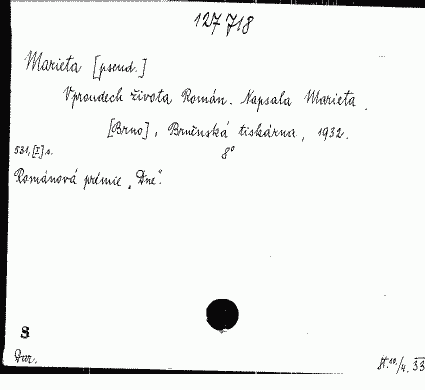 127 718
Marieta [pseud.]
V proudech života Román. Napsala Marieta.
[Brno], Brněnská tiskárna, 1932.
531, [I] s. 8°
Románová prémie „Dne".
S
Dar.
/4. 33